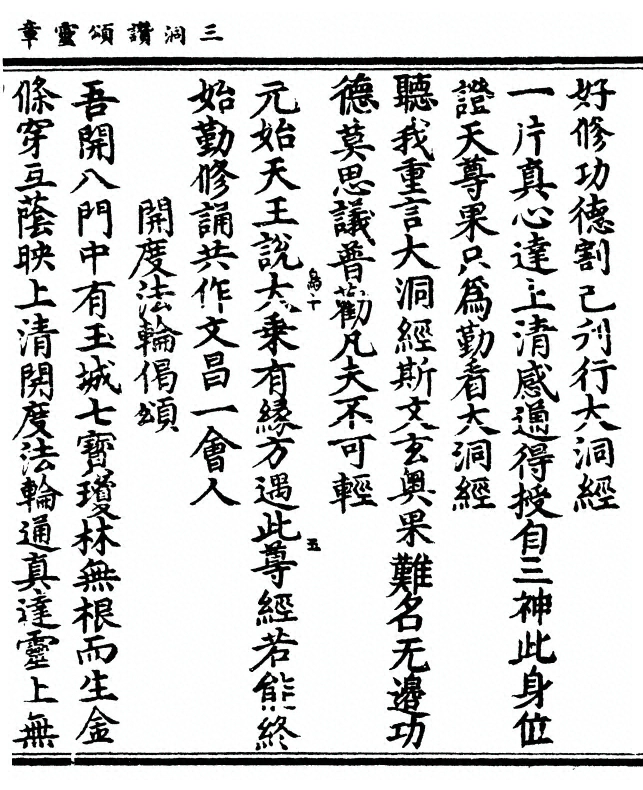 三洞讚頌靈章
好修功德割己刋行大洞經
一片真心達上清感通得授自三神此身位
證天尊果只為勤看大洞經
聽我重言大洞經斯文玄奥果難名无邉功
德莫思議普勸凡夫不可輕
元始天王說大乘有緣方遇此尊經若能終
始勤修誦共作文昌一會人
開度法輪偈頌
吾開八門中有玉城七寶瓊林無根而生金
條穿互蔭映上清開度法輪通真達靈上無